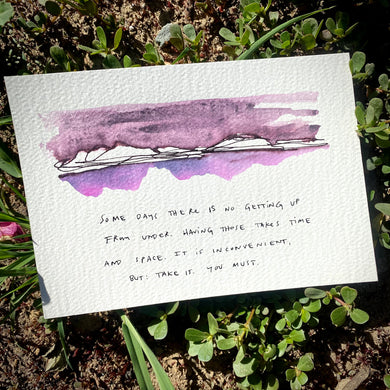 SOME DAYS THERE IS NO GETTING UP
FROM UNDER. HAVING THOSE TAKES TIME
AND SPACE. IT IS INCONVENIENT,
BUT: TAKE IT. YOU MUST.